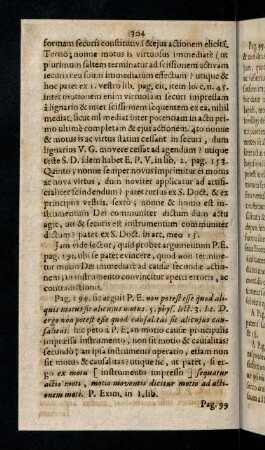 304
formam securis constitutivā & ejus actionem elicitā.
Tertiò; nonne motus is virtuosus immediatè (ut
plurimum saltem terminatur ad scissionem activam
securis ceu suum immediatum effectum? utique & hoc
patet ex 1. vestro lib. pag. cit. item loc. e. n. 45.
inter motionem enim virtuosam securi impressam
à lignario & inter scissionem sequentem ex ea, nihil
mediat; sicut nil mediat inter potentiam in actu pri-
mo ultimè completam & ejus actionem. 4to nonne
& motus is ac virtus statim cessant in securi, dum
lignarius V. G. novere cessat ad agendum? utique
teste S. D. idem habet E. P. V. in lib. 2. pag. 152.
Quintò; nonne semper novus imprimitur ei motus
ac nova virtus, dum noviter applicatur ad actu-
aliter scindendum? patet rursus ex S. Doct. & ex
principiis vestris. sextò; nonne & homo est instru-
mentum Dei communiter dictum dum actu
agit, uti & securis est instrumentum communiter
dictum? patet ex S. Doct. in art. meo 15.
Jam vide lector, quid probet argumentum P. E.
pag. 191. ubi se patere evincere, quod non ter-
minetur motio Dei immediatè ad causæ secundæ actio-
nem; an instrumento convincitur aperti erroris, ac
contradictionis.
Pag. 194. sic arguit P. E. non potest esse quod ali-
quis motus sit alicujus motus. 5. phys. lect. 3. lit. D.
ergo non potest esse quod causalitas sit alicujus cau-
salitas. hic peto à P. E. an motio causæ principalis
impressa instrumento, non sit motio & causalitas?
secundò; an ipsa instrumenti operatio, etiam non
sit motus & causalitas? utique sic, ut patet, si er-
go ex motu [instrumento impresso] sequatur
actio moti, motio moventis dicitur motio ad acti-
onem moti. P. Exim, in 1. lib.
Pag. 99